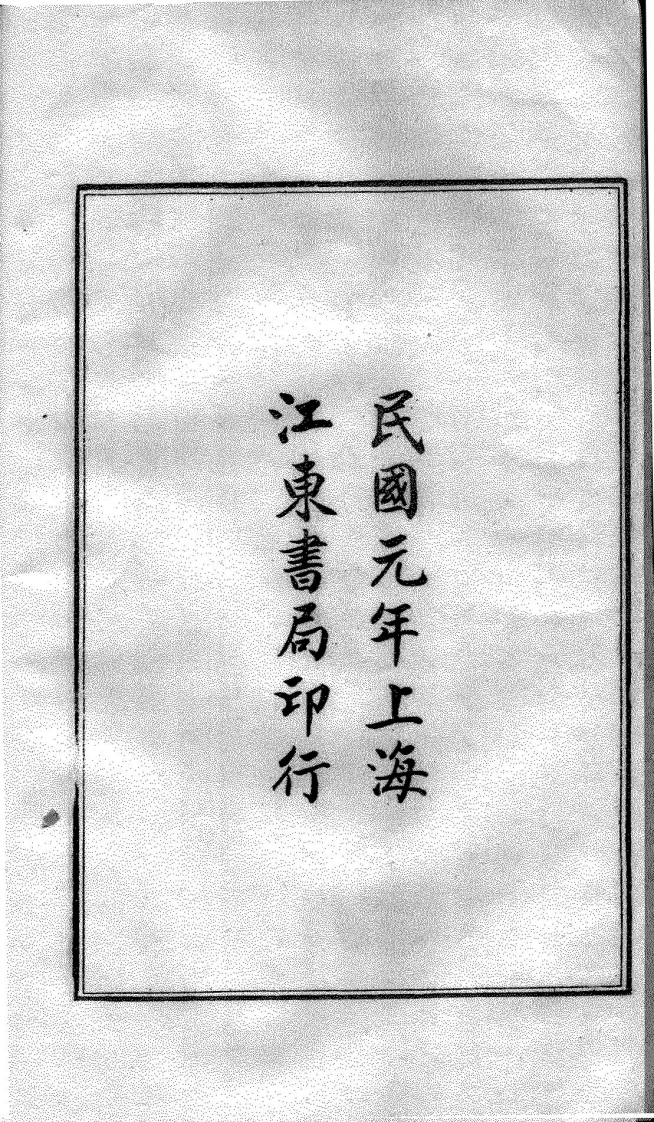 民國元年上海
江東書局印行